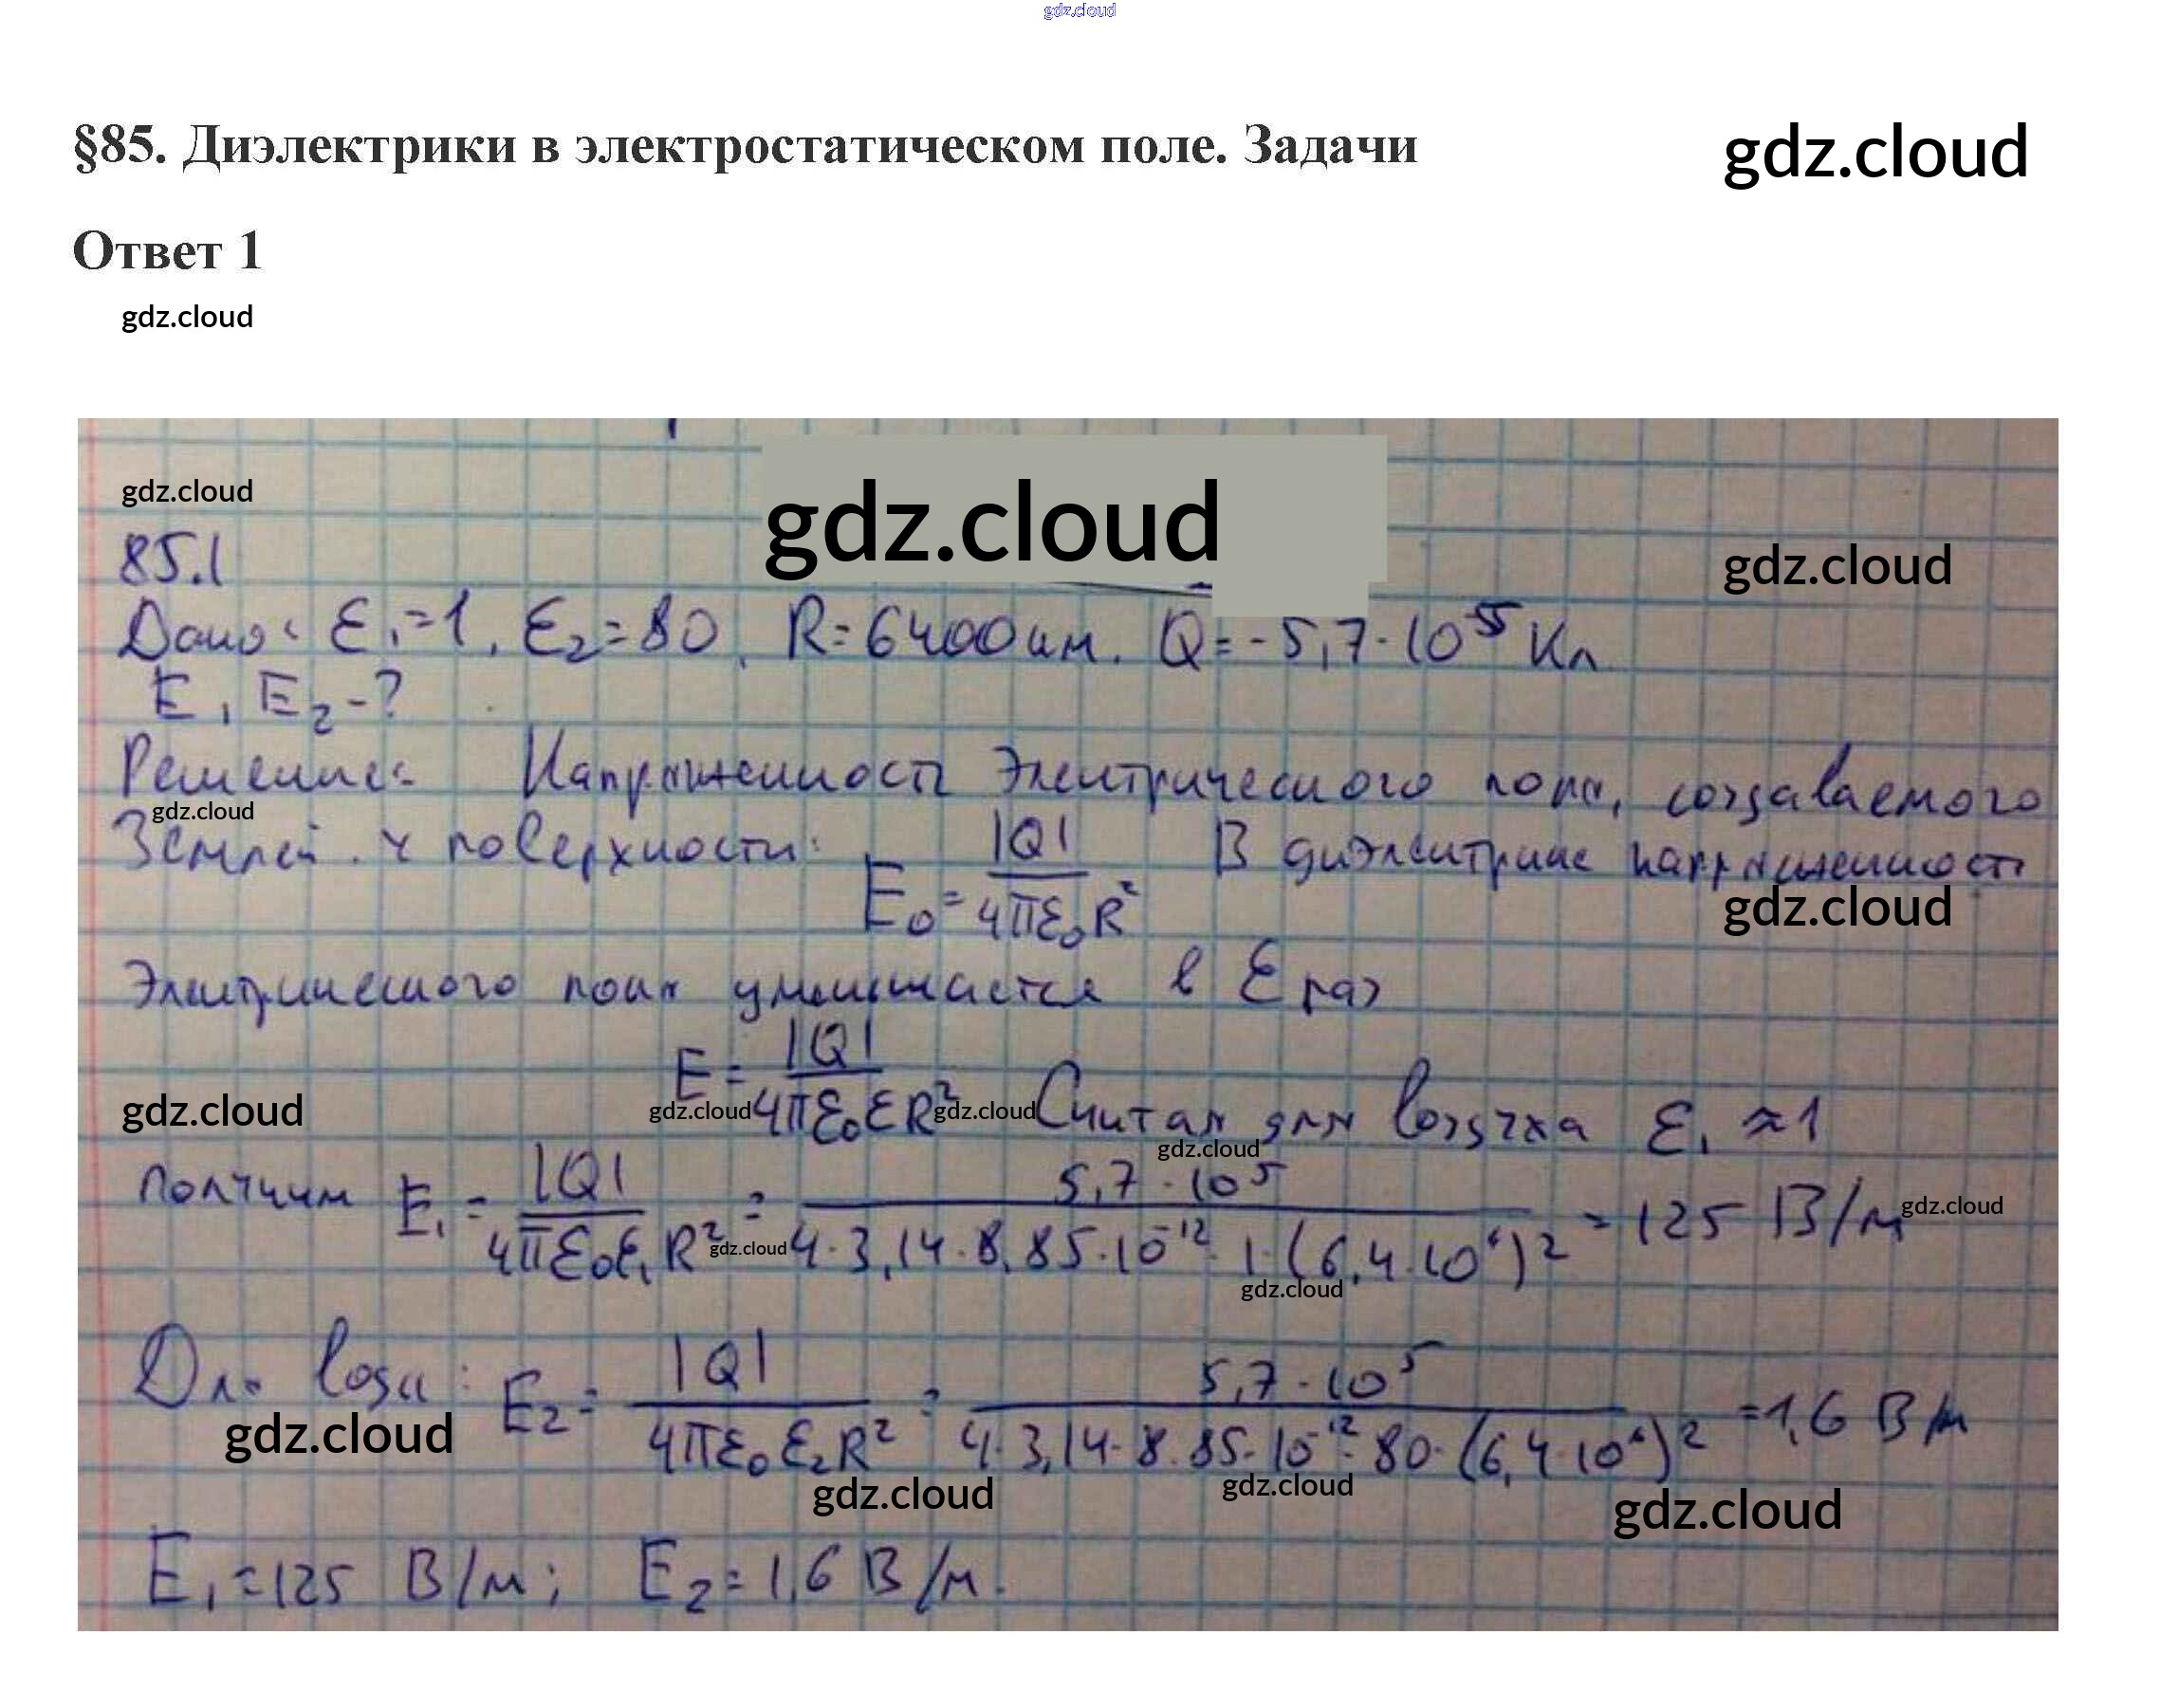 gdz.cloud
§85. Диэлектрики в электростатическом поле. Задачи
gdz.cloud
Ответ 1
gdz.cloud
gdz.cloud
gdz.cloud
85.1
gdz.cloud
Дано: ε₁=1, ε₂=80, R=6400км. Q=-5,7·10⁵ Кл
E₁ E₂-?
Решение: Напряженность электрического поля, создаваемого
gdz.cloud
Землей у поверхности: E₀=|Q|/4πε₀R² В диэлектрике напряженность
gdz.cloud
Электрического поля уменьшается в ε раз
E=|Q|/4πε₀εR² Считая для воздуха ε₁≈1
gdz.cloud gdz.cloud gdz.cloud
gdz.cloud
получим E₁=|Q|/4πε₀ε₁R²=5,7·10⁵/4·3,14·8,85·10⁻¹²·1·(6,4·10⁶)²=125 В/м
gdz.cloud
gdz.cloud
gdz.cloud
Для воды: E₂=|Q|/4πε₀ε₂R²=5,7·10⁵/4·3,14·8.85·10⁻¹²·80·(6,4·10⁶)²=1,6 В/м
gdz.cloud
gdz.cloud gdz.cloud gdz.cloud
E₁=125 В/м; E₂=1,6 В/м.